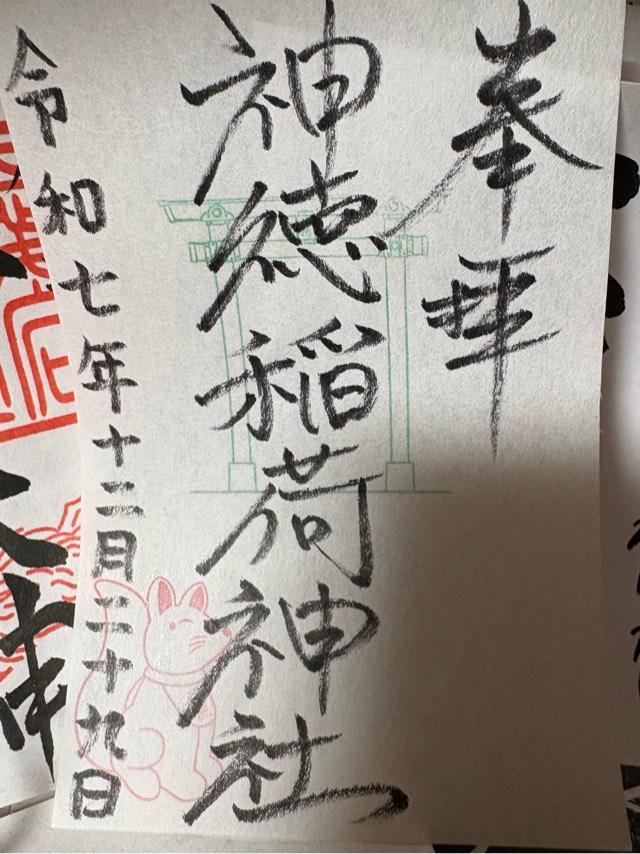 奉拝
神徳稲荷神社
令和七年十二月二十九日